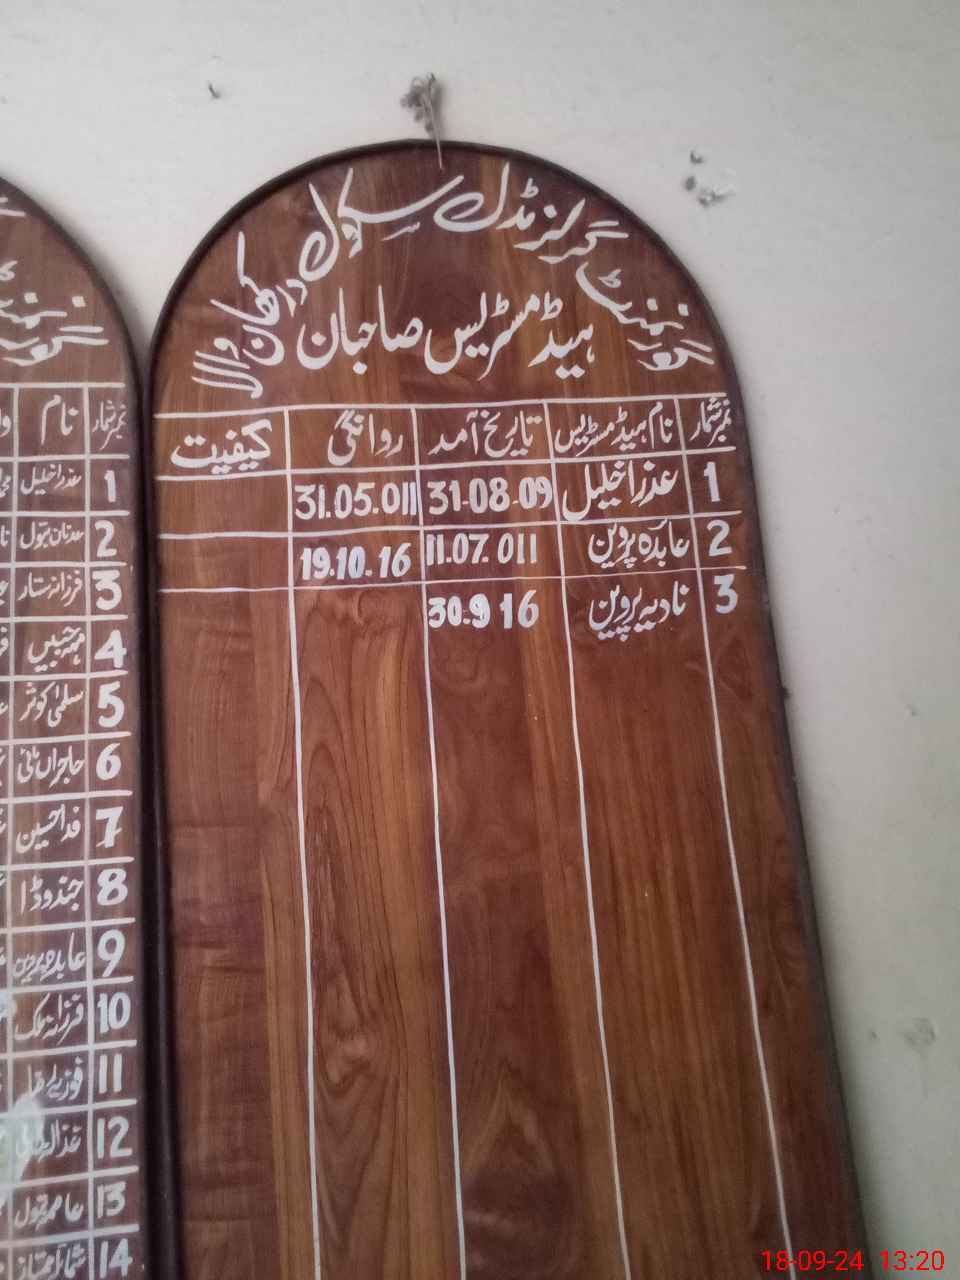 گورنمنٹ گرلز مڈل سکول درکھان والا
ہیڈ مسٹریس صاحبان
نمبرشمار نام ہیڈ مسٹریس تاریخ آمد روانگی کیفیت
1 عذرا خلیل 31-08-09 31.05.011
2 عابدہ پروین 11.07.011 19.10.16
3 نادیہ پروین 30.9 16
نمبرشمار نام
1 عذرا خلیل
2 عدنان بتول
3 فرزانہ ستار
4
5 سلمیٰ کوثر
6 حاجراں مائی
7 فدا حسین
8 جندوڈا
9 عابدہ پروین
10 فرزانہ ملک
11
12
13 عاصمہ بتول
14
18-09-24 13:20